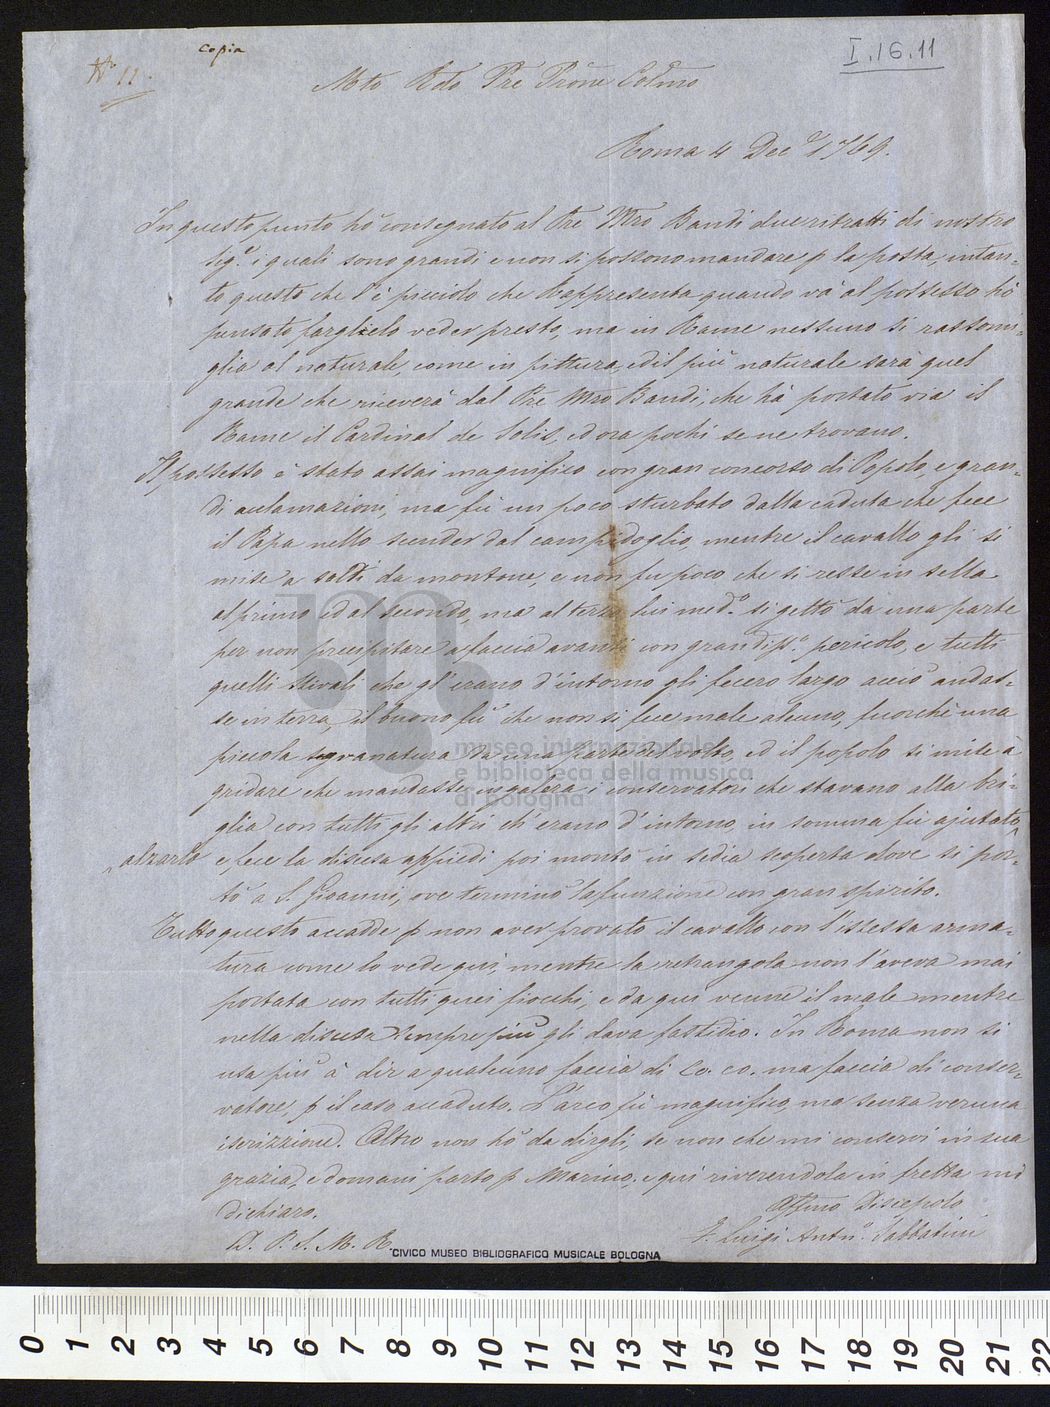 N.° 11.
Copia
I.16.11
Mto Rdo Pre Prone Colmo
Roma 4 Dec.e 1769.
In questo punto hò consegnato al Pre Mro Bandi due ritratti di nostro
Sig.e i quali sono grandi e non si possono mandare p la posta, intan-
to questo che l'è picciolo che Rappresenta quando và al possesso hò
pensato farglielo veder presto, ma in Rame nessuno si rassomi-
glia al naturale, come in pittura, ed il più naturale sarà quel
grande che riceverà dal Pre Mro Bandi, che hà portato via il
Rame il Cardinal de Solis, ed ora pochi se ne trovano.
Il possesso è stato assai magnifico con gran concorso di Popolo, e gran-
di aclamazioni, ma fù un poco sturbato dalla caduta che fece
il Papa nello scender dal campidoglio, mentre il cavallo gli si
mise a salti da montone, e non fu poco che si resse in sella
al primo ed al secondo, ma al terzo lui med.o si gettò da una parte
per non precipitare a faccia avanti con grandiss.o pericolo, e tutti
quelli stivali che gl'erano d'intorno gli fecero largo acciò andas-
se in terra, il buono fù che non si fece male alcuno, fuorchè una
piccola sgranatura da una parte del volto, ed il popolo si mise à
gridare che mandasse in galera i conservatori che stavano alla bri-
glia con tutti gli altri ch'erano d'intorno, in somma fù ajutato
alzarlo e fece la discesa appiedi poi montò in sedia scoperta dove si por-
tò a S. Gioanni, ove terminò la funzione con gran spirito.
Tutto questo accadde p non aver provato il cavallo con l'istessa arma-
tura come lo vede qui, mentre la retrangola non l'aveva mai
portata con tutti quei fiocchi, e da qui venne il male mentre
nella discesa sempre più gli dava fastidio. In Roma non si
usa più à dir a qualcuno faccia di co. co. ma faccia di conser-
vatore, p il caso accaduto. L'arco fù magnifico, ma senza veruna
iscrizzione. Altro non hò da dirgli, se non che mi conservi in sua
grazia, e domani parto p Marino, e qui riverendola in fretta mi
dichiaro.
Affmo Discepolo
D. P. S. M. R.
F. Luigi Anto.o Sabbatini
CIVICO MUSEO BIBLIOGRAFICO MUSICALE BOLOGNA
museo internazionale
e biblioteca della musica
di bologna
0 1 2 3 4 5 6 7 8 9 10 11 12 13 14 15 16 17 18 19 20 21 22